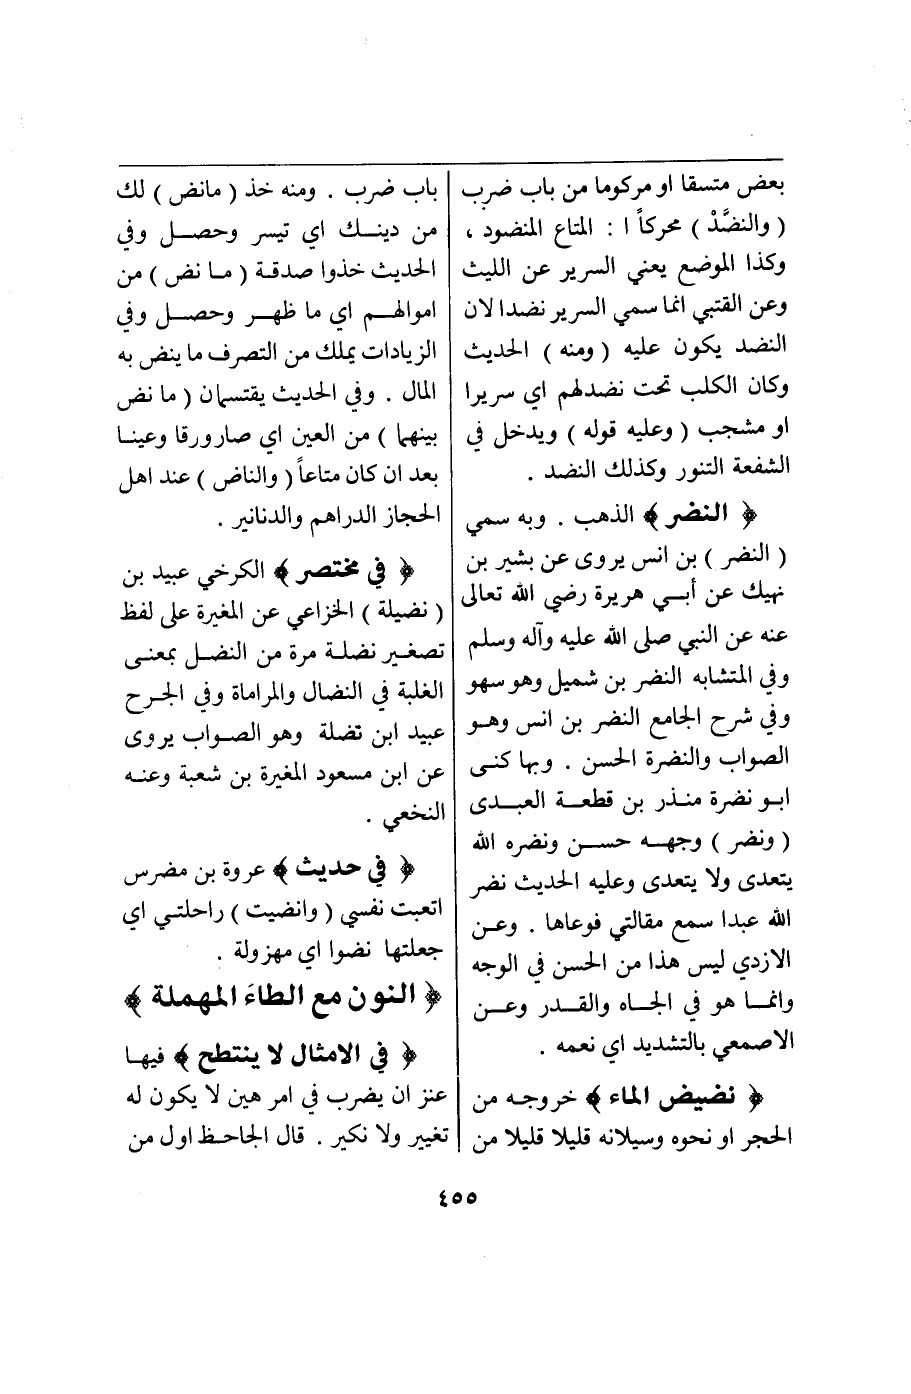 بعض متسقا او مركوما من باب ضرب
( والنضَّدْ ) محركاً ا : المتاع المنضود ،
وكذا الموضع يعني السرير عن الليث
وعن القتبي انما سمي السرير نضدا لان
النضد يكون عليه ( ومنه ) الحديث
وكان الكلب تحت نضدلهم اي سريرا
او مشجب ( وعليه قوله ) ويدخل في
الشفعة التنور وكذلك النضد .
﴿ النضر ﴾ الذهب . وبه سمي
( النضر ) بن انس يروى عن بشير بن
نهيك عن أبي هريرة رضي الله تعالى
عنه عن النبي صلى الله عليه وآله وسلم
وفي المتشابه النضر بن شميل وهو سهو
وفي شرح الجامع النضر بن انس وهو
الصواب والنضرة الحسن . وبها كنى
ابو نضرة منذر بن قطعة العبدى
( ونضر ) وجهه حسن ونضره الله
يتعدى ولا يتعدى وعليه الحديث نضر
الله عبدا سمع مقالتي فوعاها . وعن
الازدي ليس هذا من الحسن في الوجه
وانما هو في الجاه والقدر وعن
الاصمعي بالتشديد اي نعمه .
﴿ نضيض الماء ﴾ خروجه من
الحجر او نحوه وسيلانه قليلا قليلا من
باب ضرب . ومنه خذ ( مانض ) لك
من دينك اي تيسر وحصل وفي
الحديث خذوا صدقة ( ما نض ) من
اموالهم اي ما ظهر وحصل وفي
الزيادات يملك من التصرف ما ينض به
المال . وفي الحديث يقتسمان ( ما نض
بينهما ) من العين اي صارورقا وعينا
بعد ان كان متاعاً ( والناض ) عند اهل
الحجاز الدراهم والدنانير .
﴿ في مختصر ﴾ الكرخي عبيد بن
( نضيلة ) الخزاعي عن المغيرة على لفظ
تصغير نضلة مرة من النضل بمعنى
الغلبة في النضال والمراماة وفي الجرح
عبيد ابن تضلة وهو الصواب يروى
عن ابن مسعود المغيرة بن شعبة وعنه
النخعي .
﴿ في حديث ﴾ عروة بن مضرس
اتعبت نفسي ( وانضيت ) راحلتي اي
جعلتها نضوا اي مهزولة .
﴿ النون مع الطاء المهملة ﴾
﴿ في الامثال لا ينتطح ﴾ فيها
عنز ان يضرب في امر هين لا يكون له
تغيير ولا نكير . قال الجاحظ اول من
٤٥٥